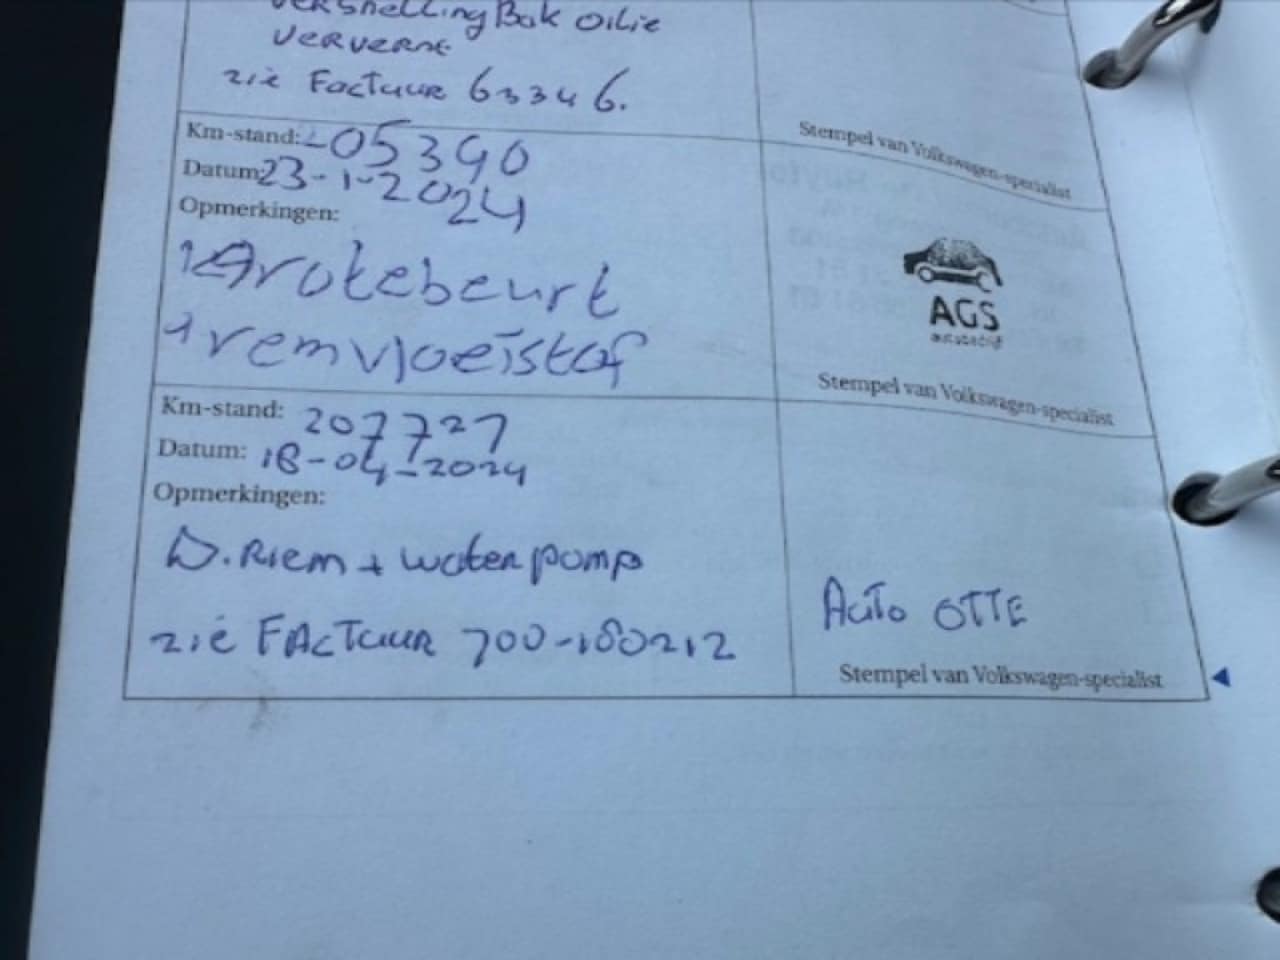 Versnelling Bak Oilie
ververne
zie Factuur 63346.
Stempel van Volkswagen-specialist
Km-stand: 205390
Datum: 23-1-2024
Opmerkingen:
Grotebeurt
remvloeistof
AGS
autobedrijf
Stempel van Volkswagen-specialist
Km-stand: 207727
Datum: 18-04-2024
Opmerkingen:
D. Riem + waterpomp
zie FACTUUR 700-180212
Auto OTTE
Stempel van Volkswagen-specialist